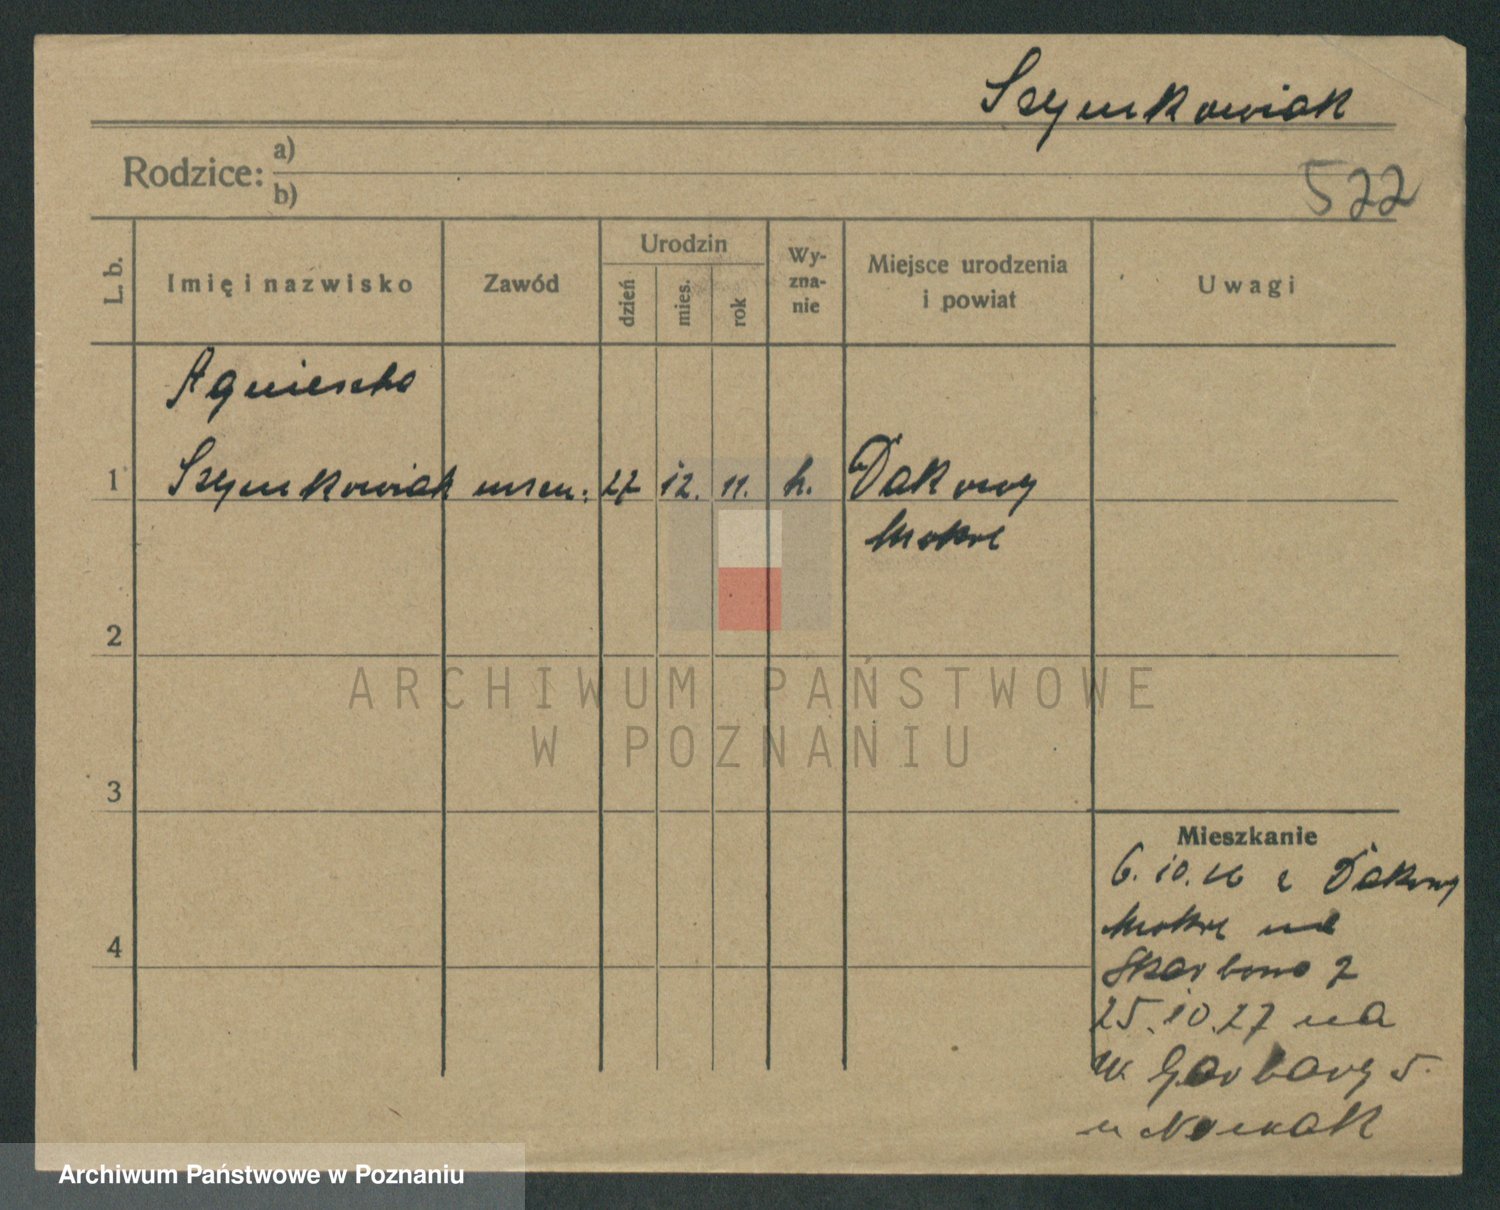 Szymkowiak
Rodzice: a)
b)
522
L. b.
Imię i nazwisko
Zawód
Urodzin
dzień
mies.
rok
Wy-
zna-
nie
Miejsce urodzenia
i powiat
Uwagi
Agnieszka
1 Szymkowiak 27 12. 11. k. Dakowy
Mokre
2
3
4
Mieszkanie
6.10.26 z Dakowy
Mokre na
Skarbowa 7
25.10.27 na
W. Garbary 5.
u Nowak
ARCHIWUM PAŃSTWOWE
W POZNANIU
Archiwum Państwowe w Poznaniu